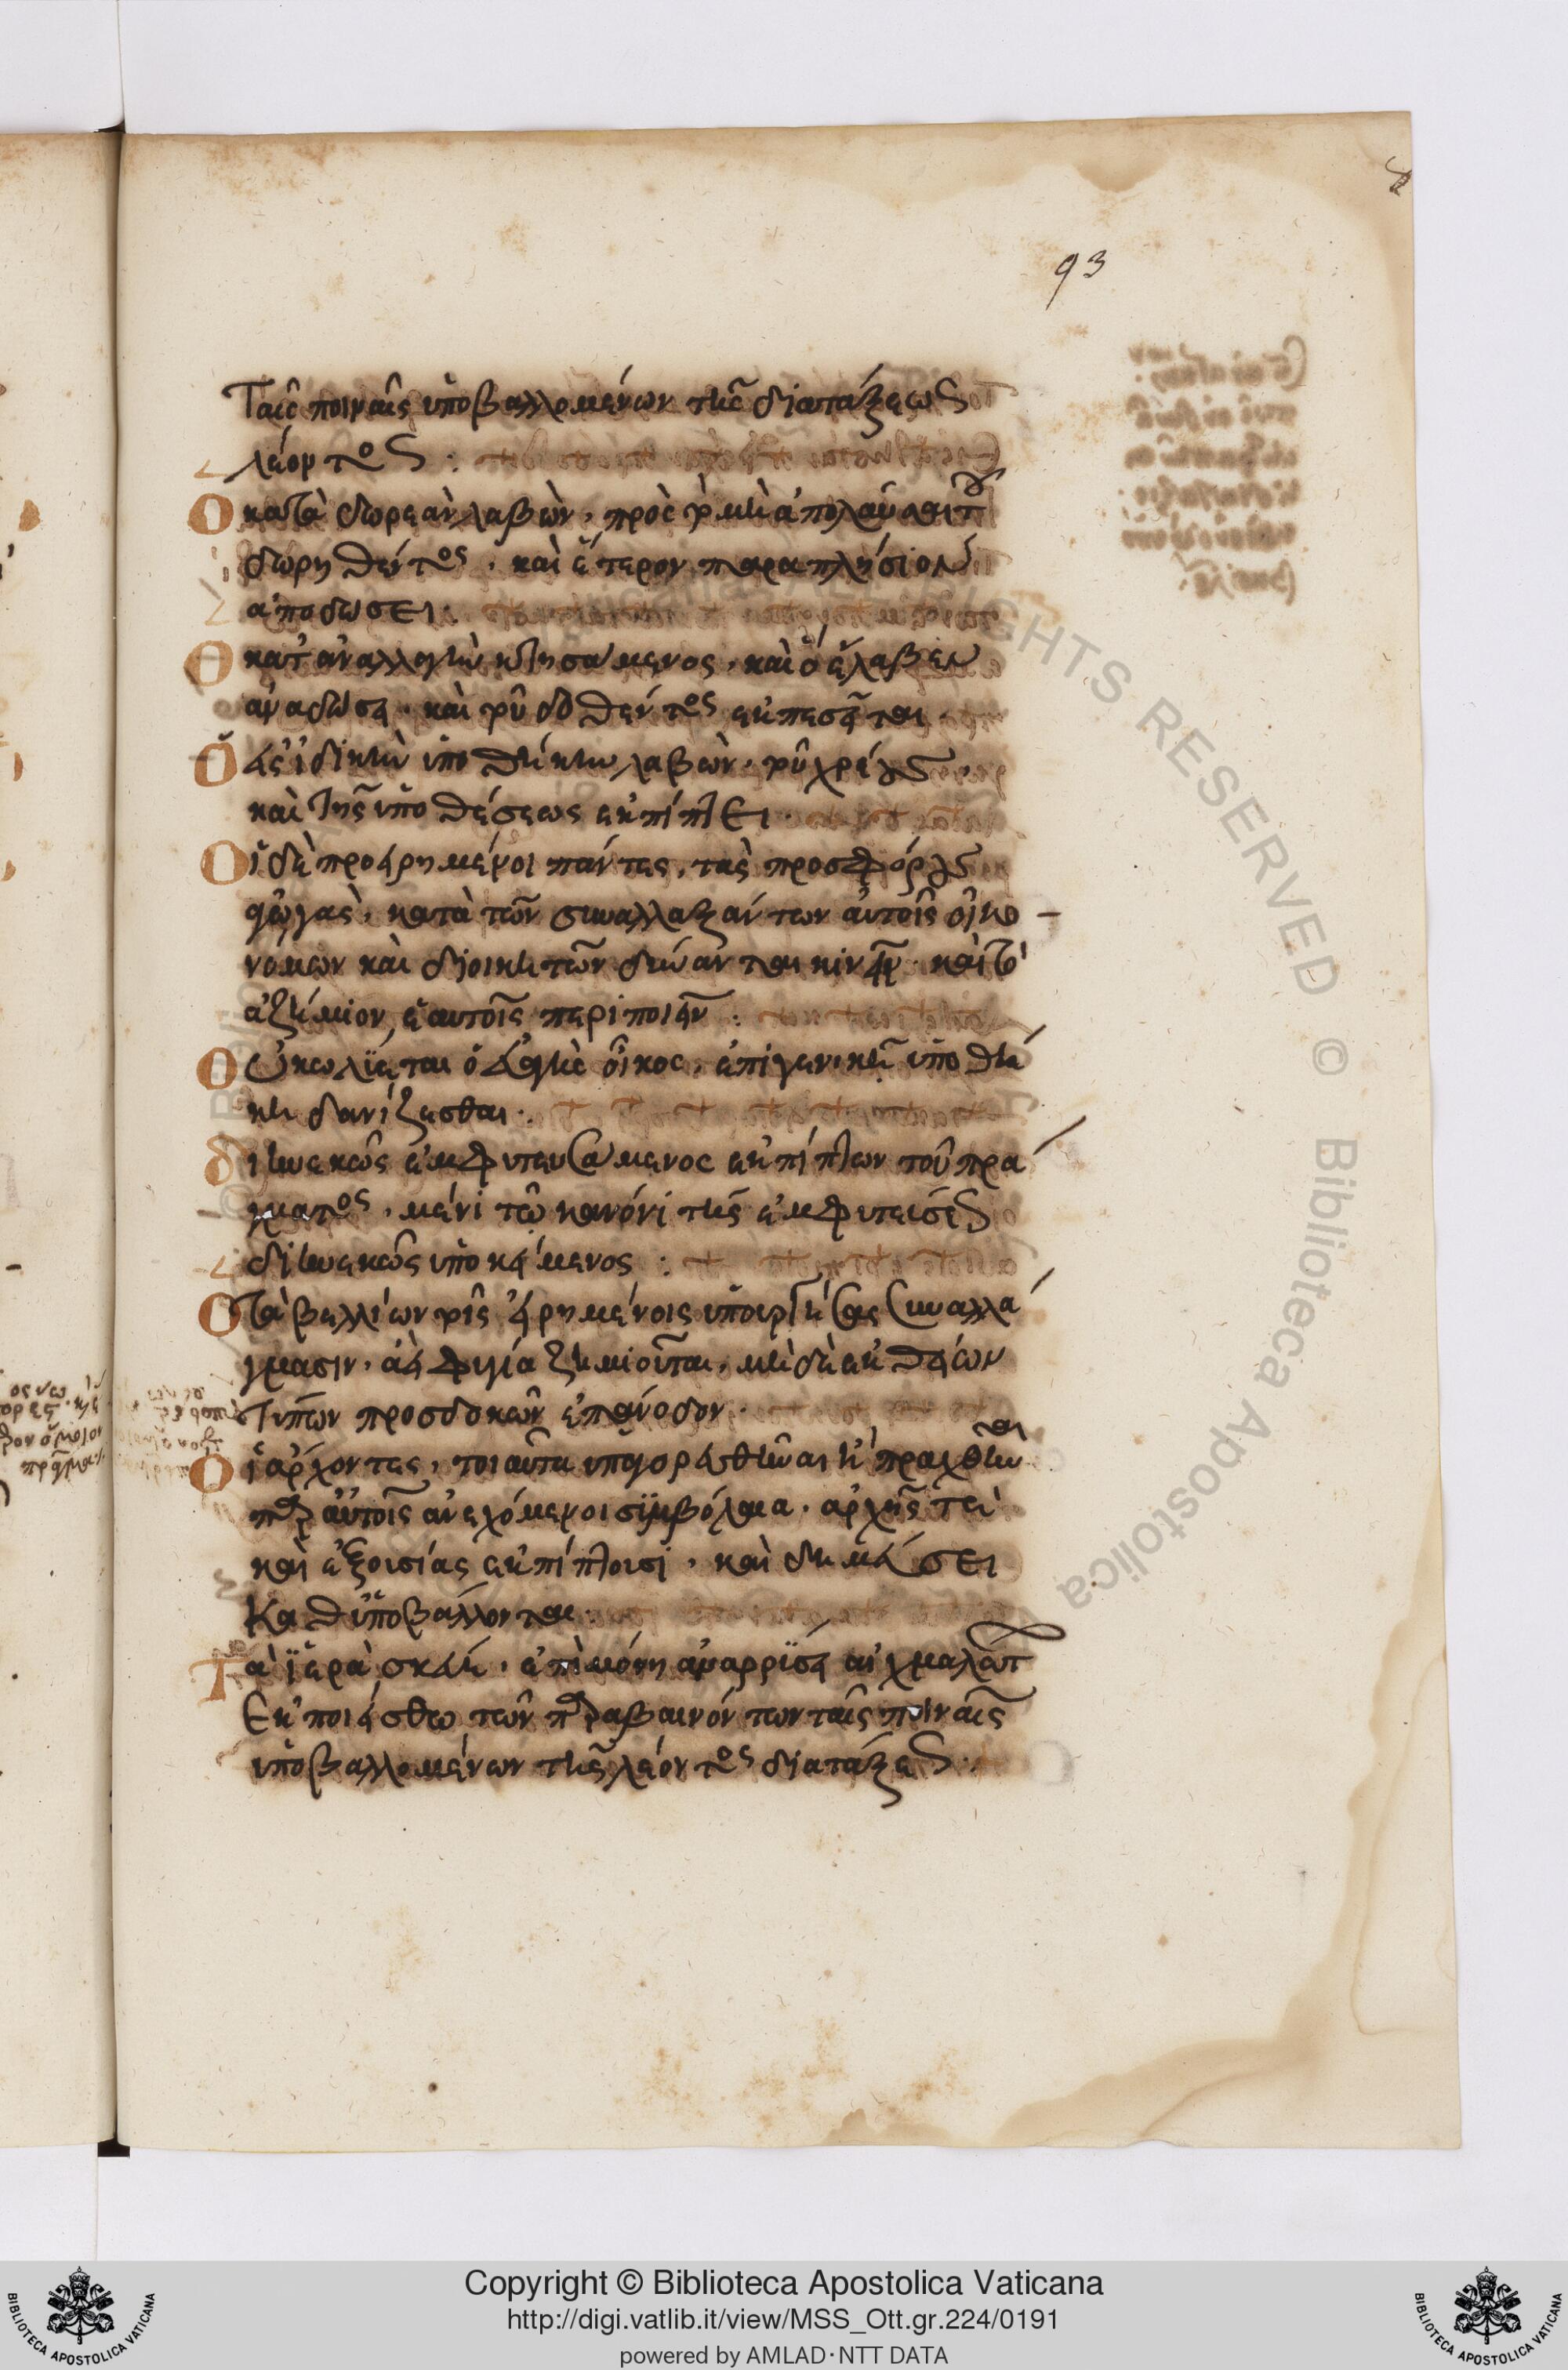 93
Ταῖς ποιναῖς ὑποβαλλομένων τῆς διατάξεως
λέοντος :
Ο κατὰ δωρεὰν λαβὼν, πρὸς τῷ μὴ ἀπολαύσαι τοῦ
δωρηθέντος, καὶ ἕτερον παραπλήσιον
ἀποδώσει.
Ο κατ' ἀναλλαγὴν κτησάμενος, καὶ ὃ ἔλαβεν
ἀναδώσει. καὶ τοῦ δοθέντος ἐκπεσεῖται.
Ὁ εἰδικὴν ὑποθήκην λαβὼν, τοῦ χρέους,
καὶ τῆς ὑποθέσεως ἐκπίπτει.
Οἱ δὲ προειρημένοι πάντες, τὰς προσφόρους
ἀγωγὰς, κατὰ τῶν συναλλαξάντων αὐτοῖς οἰκο-
νόμων καὶ διοικητῶν δύνανται κινεῖν. καὶ τὸ
ἀζήμιον ἑαυτοῖς περιποιεῖν.
Οὐ κωλύεται ὁ εὐαγὴς οἶκος, ἐπὶ γενικῇ ὑποθή
κη δανίζεσθαι.
διηνεκῶς ἐμφυτευσάμενος ἐκπίπτων τοῦ πρά
γματος, μένει τῷ κανόνι τῆς ἐμφυτεύσεως
διηνεκῶς ὑποκείμενος :
Ο ταβελλίων τοῖς εἰρημένοις ὑπουργήσας συναλλά
γμασιν, ἀειφυγία ζημιοῦται, μηδὲ ἐκ θείων
τύπων προσδοκῶν ἐπάνοδον.
Οἱ ἄρχοντες, τοιαῦτα ὑπαγορευθῆναι ἢ πραχθῆναι
παρ' αὐτοῖς ἀνεχόμενοι συμβόλαια, ἀρχῆς τε
καὶ ἐξουσίας ἐκπίπτουσι, καὶ δημεύσει
καθυποβάλλονται.
Τὰ ἱερὰ σκεύη, ἐπὶ μόνῃ ἀναρρύσει αἰχμαλώτων
Ἐκποιείσθω τῶν παραβαινόντων ταῖς ποιναῖς
ὑποβαλλομένων τῆς λέοντος διατάξεως.
RIGHTS RESERVED © Biblioteca Apostolica
Copyright © Biblioteca Apostolica Vaticana
http://digi.vatlib.it/view/MSS_Ott.gr.224/0191
powered by AMLAD·NTT DATA
BIBLIOTECA APOSTOLICA VATICANA
BIBLIOTECA APOSTOLICA VATICANA